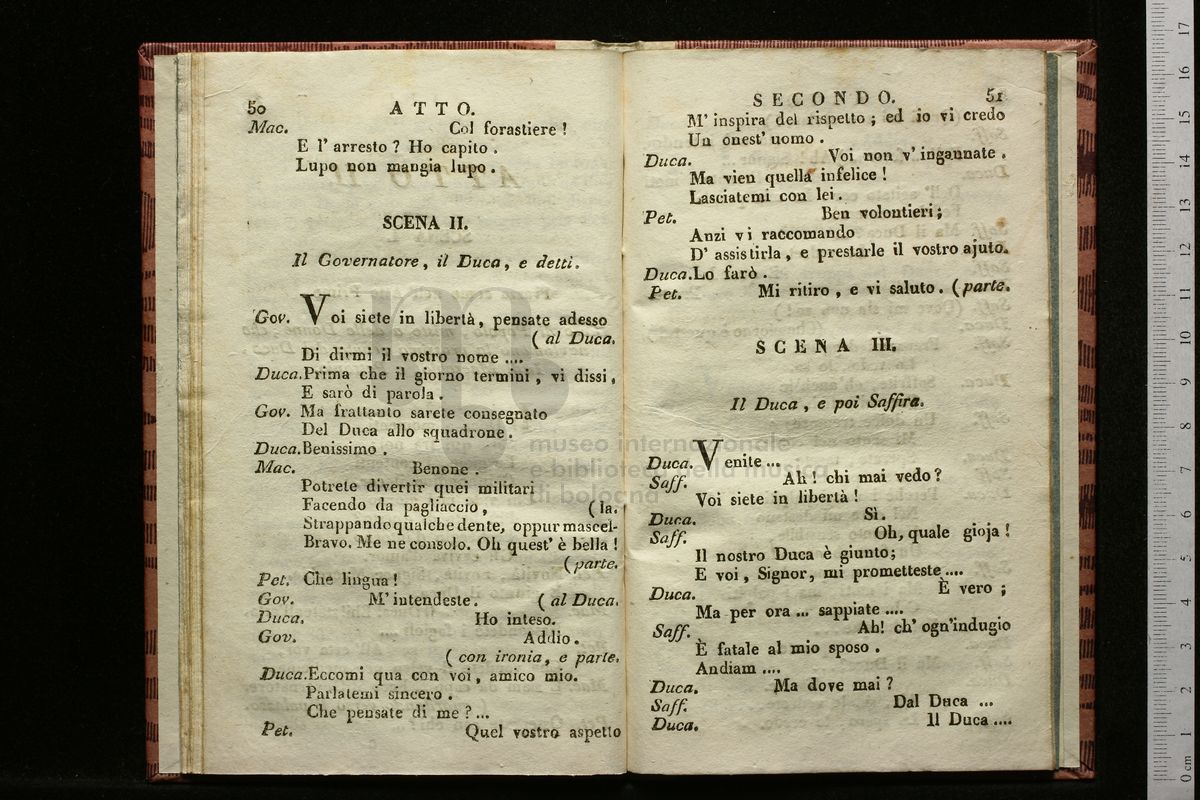 50 ATTO.
Mac. Col forastiere !
E l' arresto ? Ho capito .
Lupo non mangia lupo .
SCENA II.
Il Governatore , il Duca , e detti.
Gov. Voi siete in libertà , pensate adesso
( al Duca.
Di dirmi il vostro nome ....
Duca. Prima che il giorno termini , vi dissi ,
E sarò di parola .
Gov. Ma frattanto sarete consegnato
Del Duca allo squadrone .
Duca. Benissimo .
Mac. Benone .
Potrete divertir quei militari
Facendo da pagliaccio , ( la.
Strappando qualche dente, oppur mascel-
Bravo. Me ne consolo. Oh quest' è bella !
( parte.
Pet. Che lingua !
Gov. M' intendeste . ( al Duca.
Duca. Ho inteso.
Gov. Addio .
( con ironia , e parte.
Duca. Eccomi qua con voi , amico mio.
Parlatemi sincero .
Che pensate di me ? ...
Pet. Quel vostro aspetto
SECONDO. 51
M' inspira del rispetto ; ed io vi credo
Un onest' uomo .
Duca. Voi non v' ingannate .
Ma vien quella infelice !
Lasciatemi con lei .
Pet. Ben volontieri ;
Anzi vi raccomando
D' assistirla , e prestarle il vostro ajuto.
Duca. Lo farò .
Pet. Mi ritiro , e vi saluto . ( parte.
SCENA III.
Il Duca , e poi Saffira.
Duca. Venite ...
Saff. Ah ! chi mai vedo ?
Voi siete in libertà !
Duca. Sì.
Saff. Oh, quale gioja !
Il nostro Duca è giunto ;
E voi , Signor , mi prometteste ....
Duca. È vero ;
Ma per ora ... sappiate ....
Saff. Ah! ch' ogn'indugio
È fatale al mio sposo .
Andiam ....
Duca. Ma dove mai ?
Saff. Dal Duca ...
Duca. Il Duca ....
museo internazionale
e biblioteca della musica
di bologna
0 cm 1 2 3 4 5 6 7 8 9 10 11 12 13 14 15 16 17